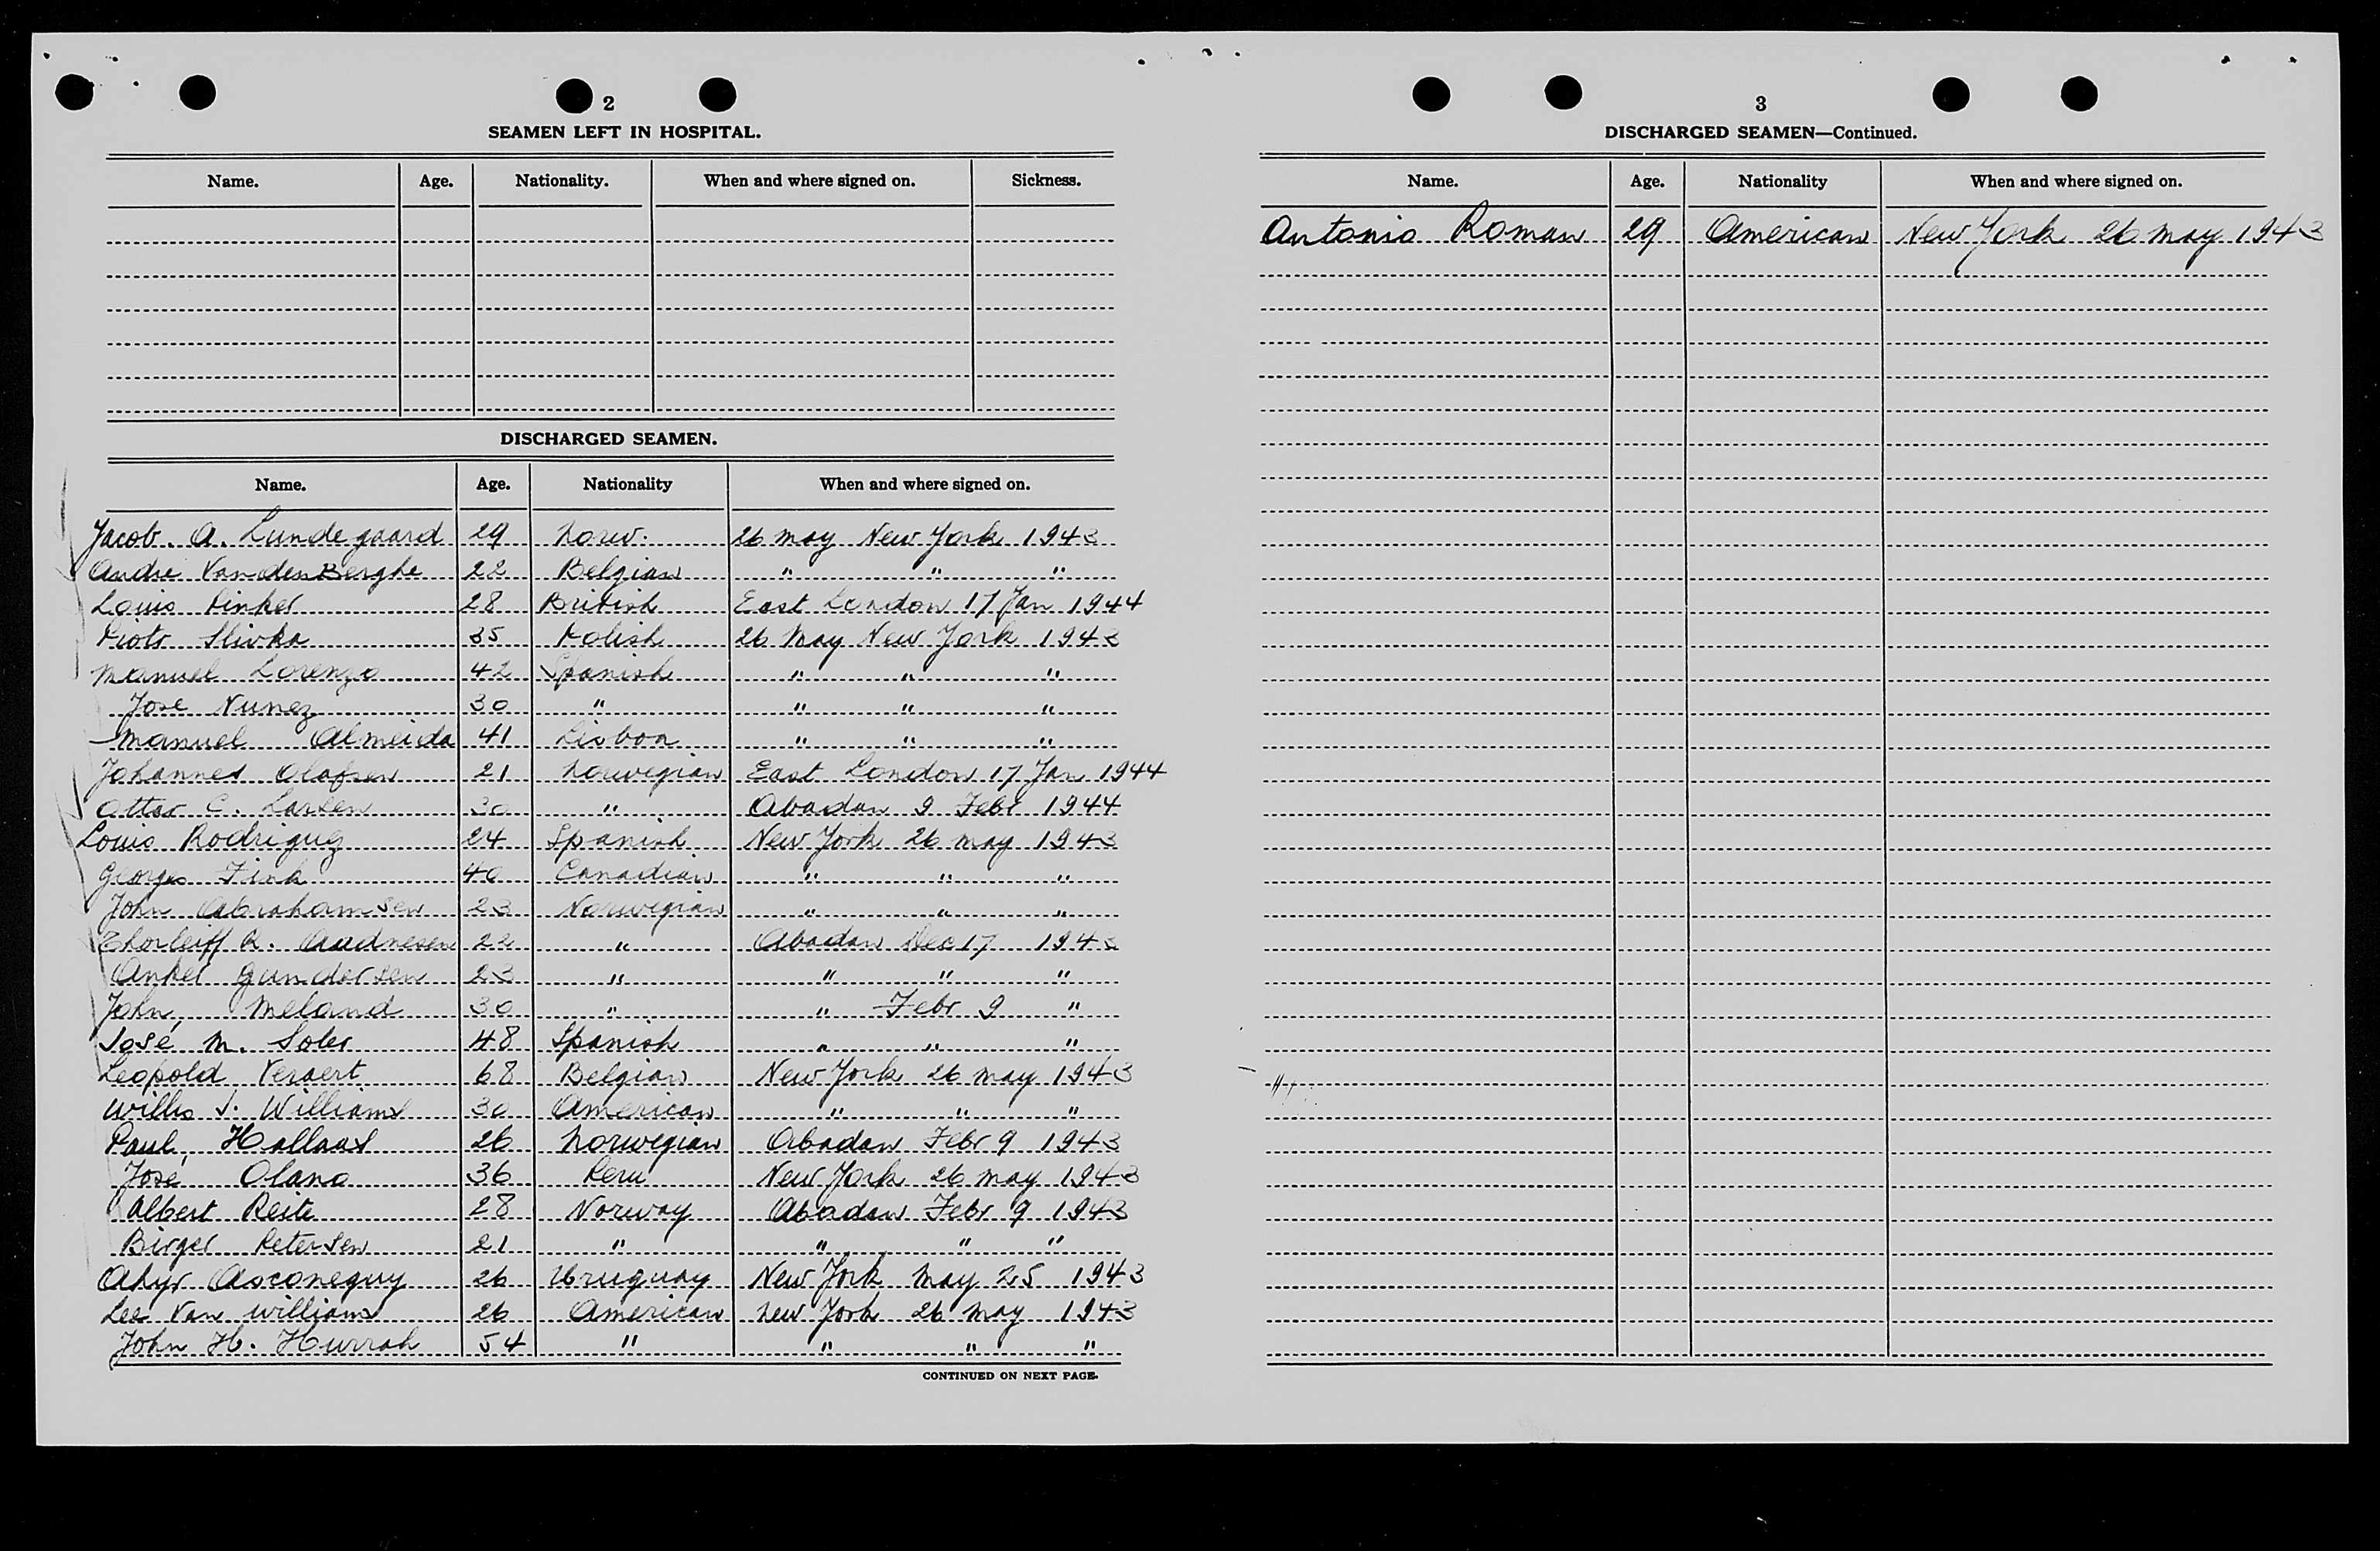 2
SEAMEN LEFT IN HOSPITAL.
Name. Age. Nationality. When and where signed on. Sickness.
DISCHARGED SEAMEN.
Name. Age. Nationality When and where signed on.
Jacob. A. Lundegaard 29 Norw. 26 May New York 1943
Andre VandenBerghe 22 Belgian " " "
Louis Pinker 28 British East London 17 Jan 1944
Piotr Slivka 35 Polish 26 May New York 1943
Manuel Lorenzo 42 Spanish " " "
José Nunez 30 " " " "
Manuel Almeida 41 Lisboa " " "
Johannes Olafsen 21 Norwegian East London 17 Jan 1944
Ottar C. Larsen 30 " Abadan 9 Febr 1944
Louis Rodriguz 24 Spanish New York 26 May 1943
Georges Fink 40 Canadian " " "
John Abrahamsen 23 Norwegian " " "
Thorleiff R. Audnesen 22 " Abadan Dec 17 1943
Anker Gundersen 23 " " " "
John Meland 30 " " Febr 9 "
José M. Soler 48 Spanish " " "
Leopold Veraert 68 Belgian New York 26 May 1943
Willis J. Williams 30 American " " "
Paul Hallaas 26 Norwegian Abadan Febr 9 1943
José Olano 36 Peru New York 26 May 1943
Albert Reite 28 Norway Abadan Febr 9 1943
Birger Petersen 21 " " " "
Ahyr Asconeguy 26 Uruguay New York May 25 1943
Lee Van Williams 26 American New York 26 May 1943
John H. Hurrah 54 " " " "
CONTINUED ON NEXT PAGE.
3
DISCHARGED SEAMEN—Continued.
Name. Age. Nationality When and where signed on.
Antonio Roman 29 American New York 26 May 1943